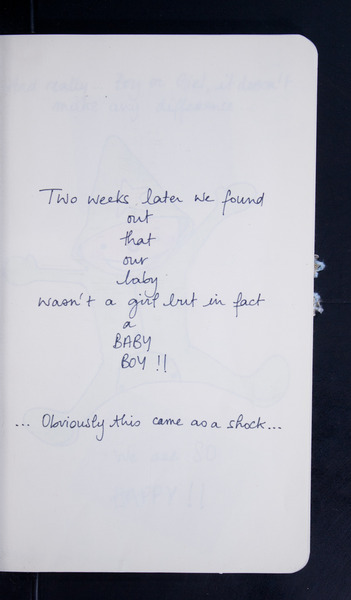 Two weeks later we found
out
that
our
baby
wasn't a girl but in fact
a
BABY
BOY !!
... Obviously this came as a shock...